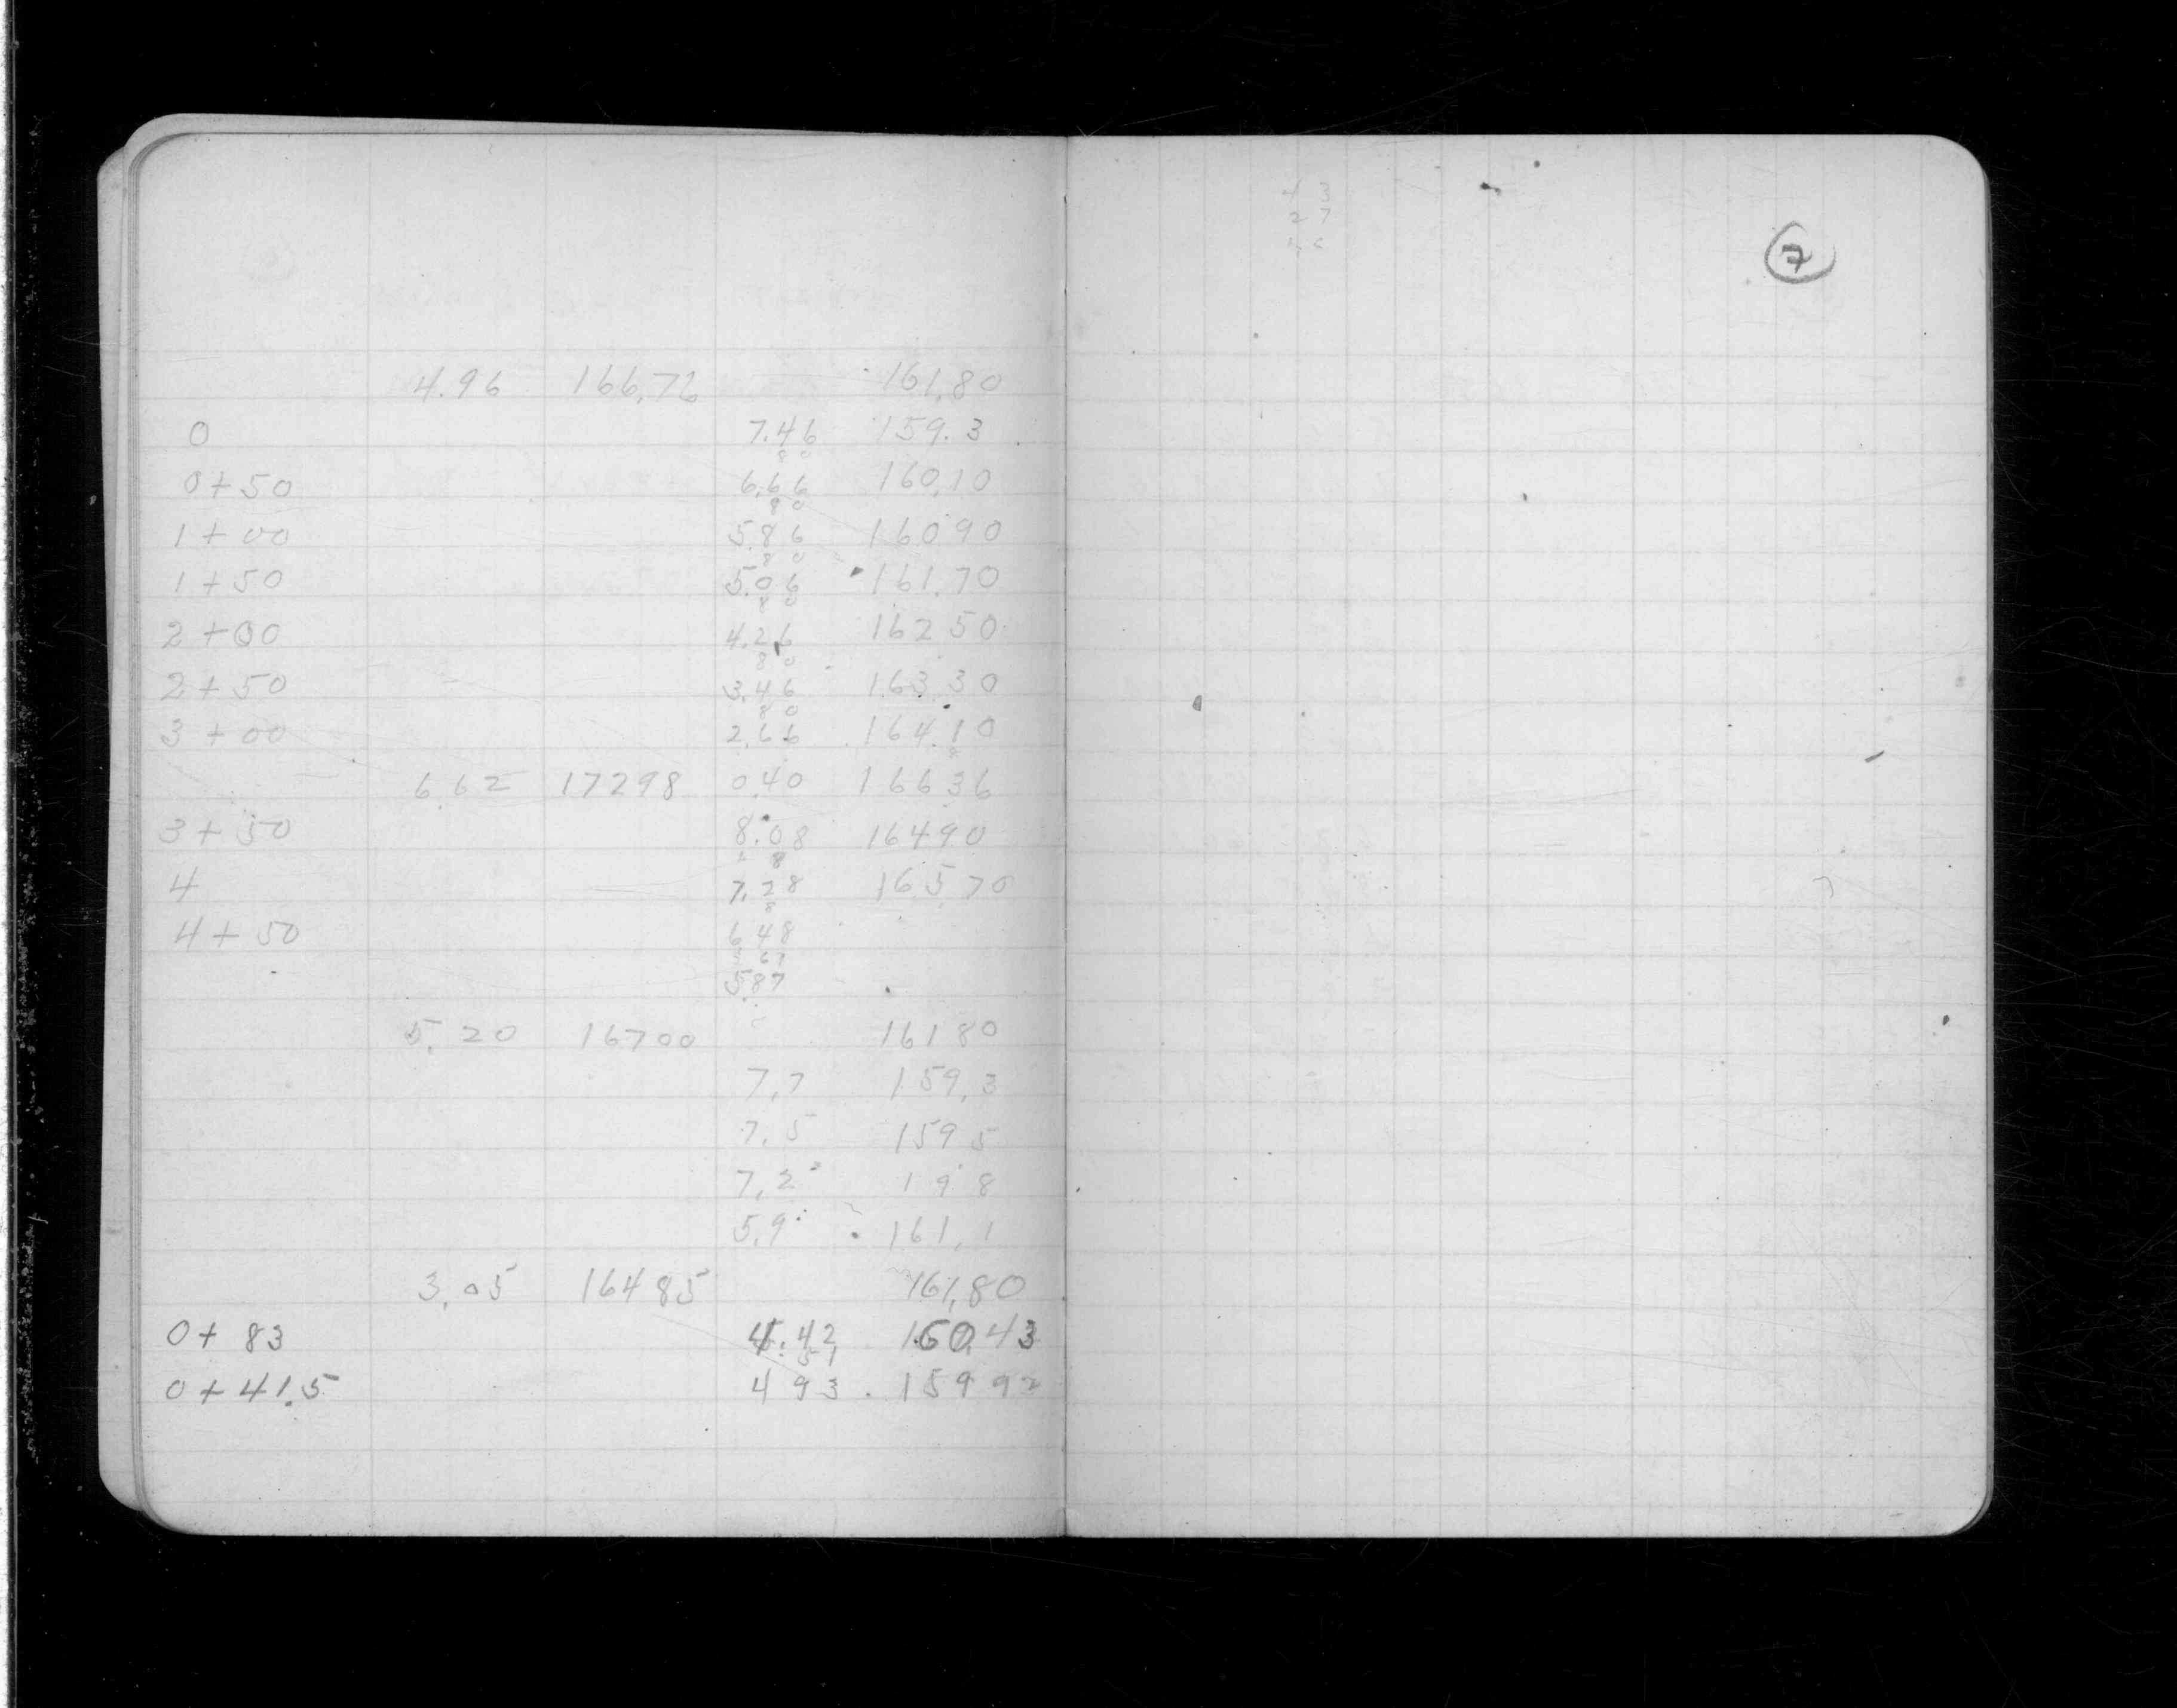 4.96 166.76 161.80
0 7.46 159.3
80
0+50 6.66 160.10
80
1+00 5.86 16090
80
1+50 5.06 161.70
80
2+00 4.26 16250
80
2+50 3.46 16330
80
3+00 2.66 164.10
6.62 17298 0.40 16636
3+50 8.08 16490
8
4 7.28 16570
8
4+50 6.48
61
5.87
5.20 16700 16180
7.7 159.3
7.5 1595
7.2 198
5.9 161.1
3.05 16485 161.80
0+83 4.42 160.43
51
0+41.5 493 15992
43
27
16
7